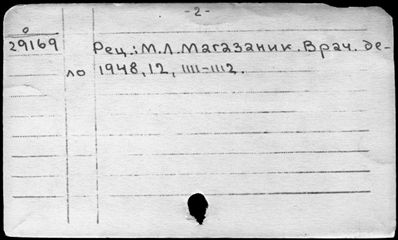 - 2 -
о
29169
Рец.: М.Л. Магазаник. Врач. де-
ло 1948, 12, 1111-1112.